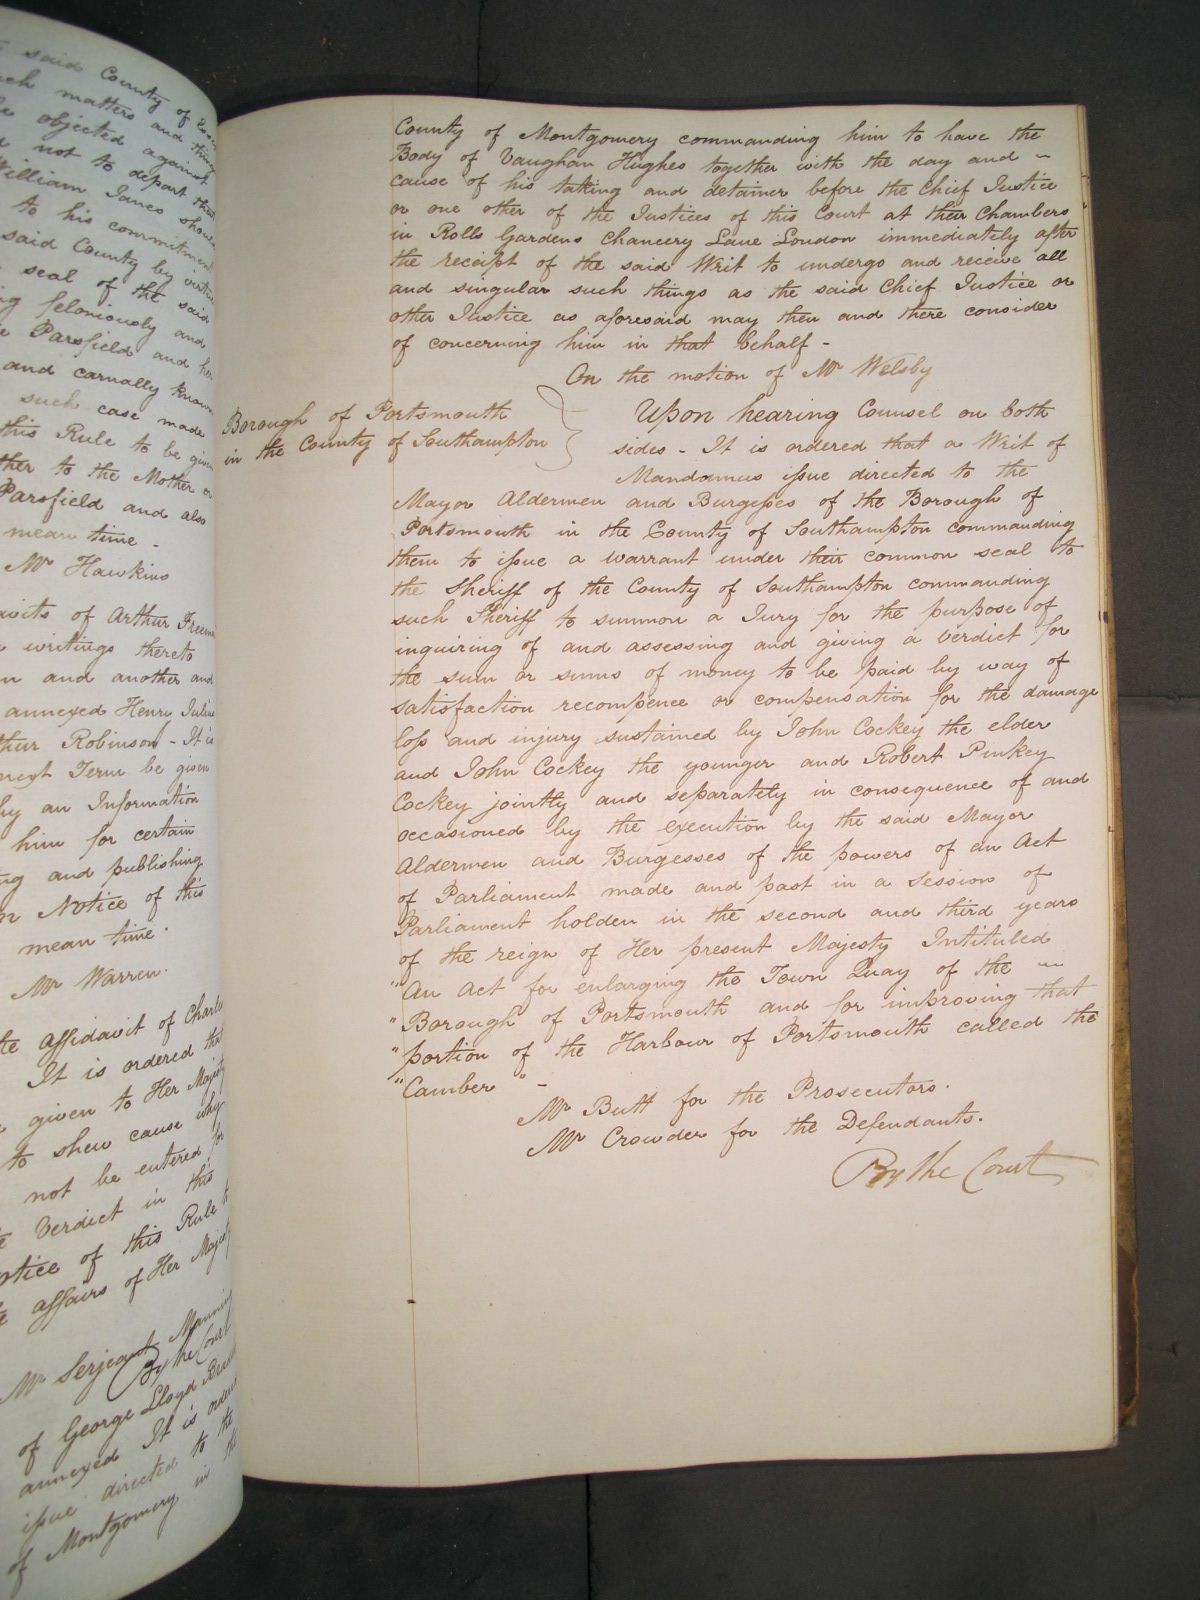 said County of
such matters and things
be objected against
not to depart the
William Jones should
to his commitment
said County by virtue
seal of the said
feloniously and
Parsfield and her
and carnally known
such case made
this Rule to be given
to the Mother or
Parsfield and also
mean time -
Mr Hawkins
of Arthur
writings thereto
and another and
annexed Henry Julius
Arthur Robinson - It is
next Term be given
by an Information
him for certain
and publishing
Notice of this
mean time.
Mr Warren.
the Affidavit of Charles
It is ordered that
given to Her Majesty
to shew cause why
not be entered for
Verdict in this
Notice of this Rule to
affairs of Her Majesty
Mr Serjeant Manning
By the Court
of George Lloyd
annexed It is ordered
issue directed to the
of Montgomery in the
County of Montgomery commanding him to have the
Body of Vaughan Hughes together with the day and ~
cause of his taking and detainer before the Chief Justice
or one other of the Justices of this Court at their Chambers
in Rolls Gardens Chancery Lane London immediately after
the receipt of the said Writ to undergo and receive all
and singular such things as the said Chief Justice or
other Justice as aforesaid may then and there consider
of concerning him in that behalf -
On the motion of Mr Welsby
Borough of Portsmouth
in the County of Southampton
Upon hearing Counsel on both
sides - It is ordered that a Writ of
Mandamus issue directed to the
Mayor Aldermen and Burgesses of the Borough of
Portsmouth in the County of Southampton commanding
them to issue a warrant under their common seal to
the Sheriff of the County of Southampton commanding
such Sheriff to summon a Jury for the purpose of
inquiring of and assessing and giving a verdict for
the sum or sums of money to be paid by way of
satisfaction recompence or compensation for the damage
loss and injury sustained by John Cockey the elder
and John Cockey the younger and Robert Pinkey
Cockey jointly and separately in consequence of and
occasioned by the execution by the said Mayor
Aldermen and Burgesses of the powers of an Act
of Parliament made and past in a Session of
Parliament holden in the second and third years
of the reign of Her present Majesty Intituled
"An Act for enlarging the Town Quay of the ~
"Borough of Portsmouth and for improving that
"portion of the Harbour of Portsmouth called the
"Camber" -
Mr Butt for the Prosecutors.
Mr Crowder for the Defendants.
By the Court